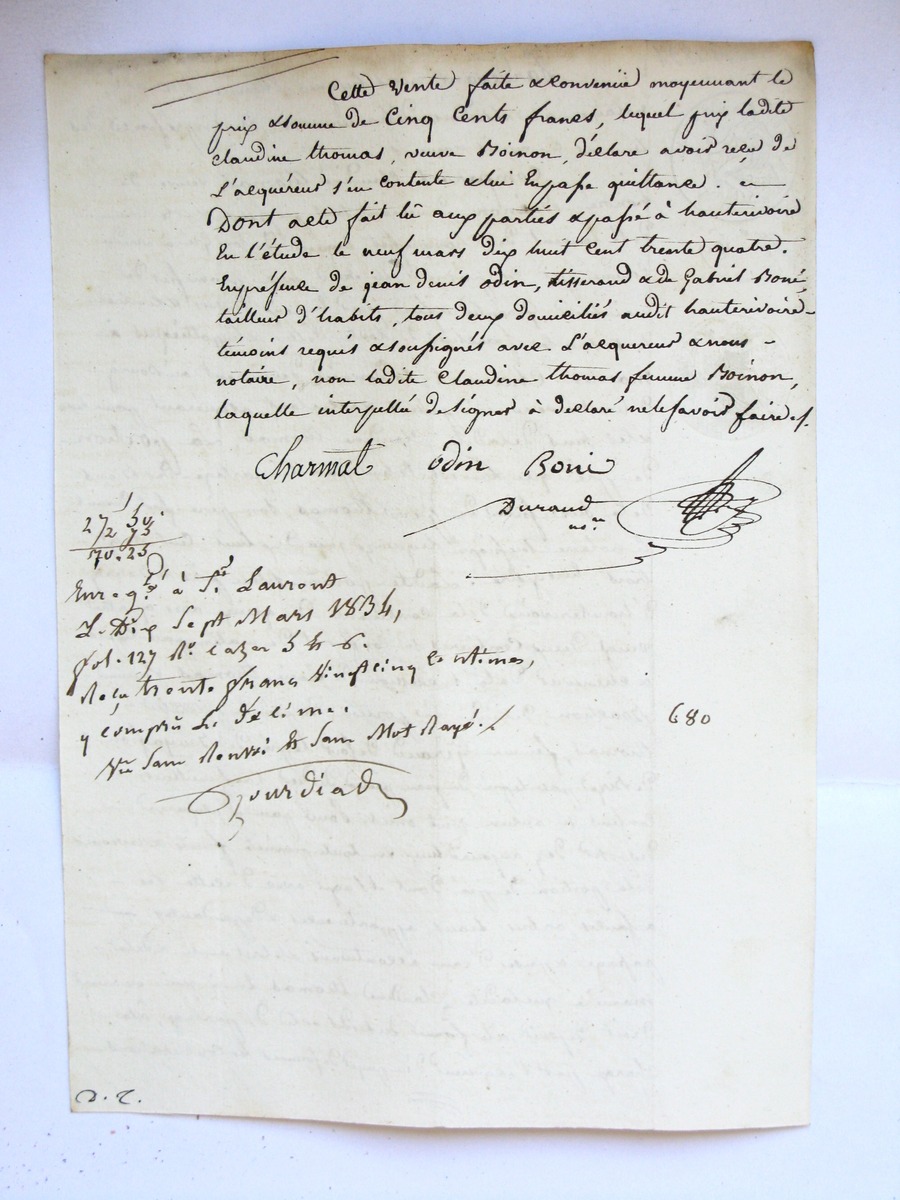 Cette Vente faite & convenüe moyennant le
prix & somme de Cinq Cents francs, lequel prix ladite
Claudine thomas, veuve Boinon, déclare avoir reçu de
L'acquéreur s'en contente & lui En passe quittance.
Dont acte fait lû aux parties & passé à hauterivoire
En l'étude le neuf mars dix huit cent trente quatre.
En présence de jean denis odin, tisserand & de Gabriel Boné,
tailleur d'habits, tous deux domiciliés audit hauterivoire
témoins requis & soussignés avec L'acquereur & nous
notaire, non ladite Claudine thomas femme Boinon,
laquelle interpellée de signer à déclaré ne le savoir faire
Charmat odin Boné
Durand
nore
27 50
2 75
30.25
Enregé à St. Laurent
Le Dix Sept Mars 1834,
fol. 127 Ro. Cazes 5 et 6.
Reçu trente francs Vingt cinq centimes,
y compris Le décime.
Sans Renvoi Et Sans Mot Rayé.
680
D. C.